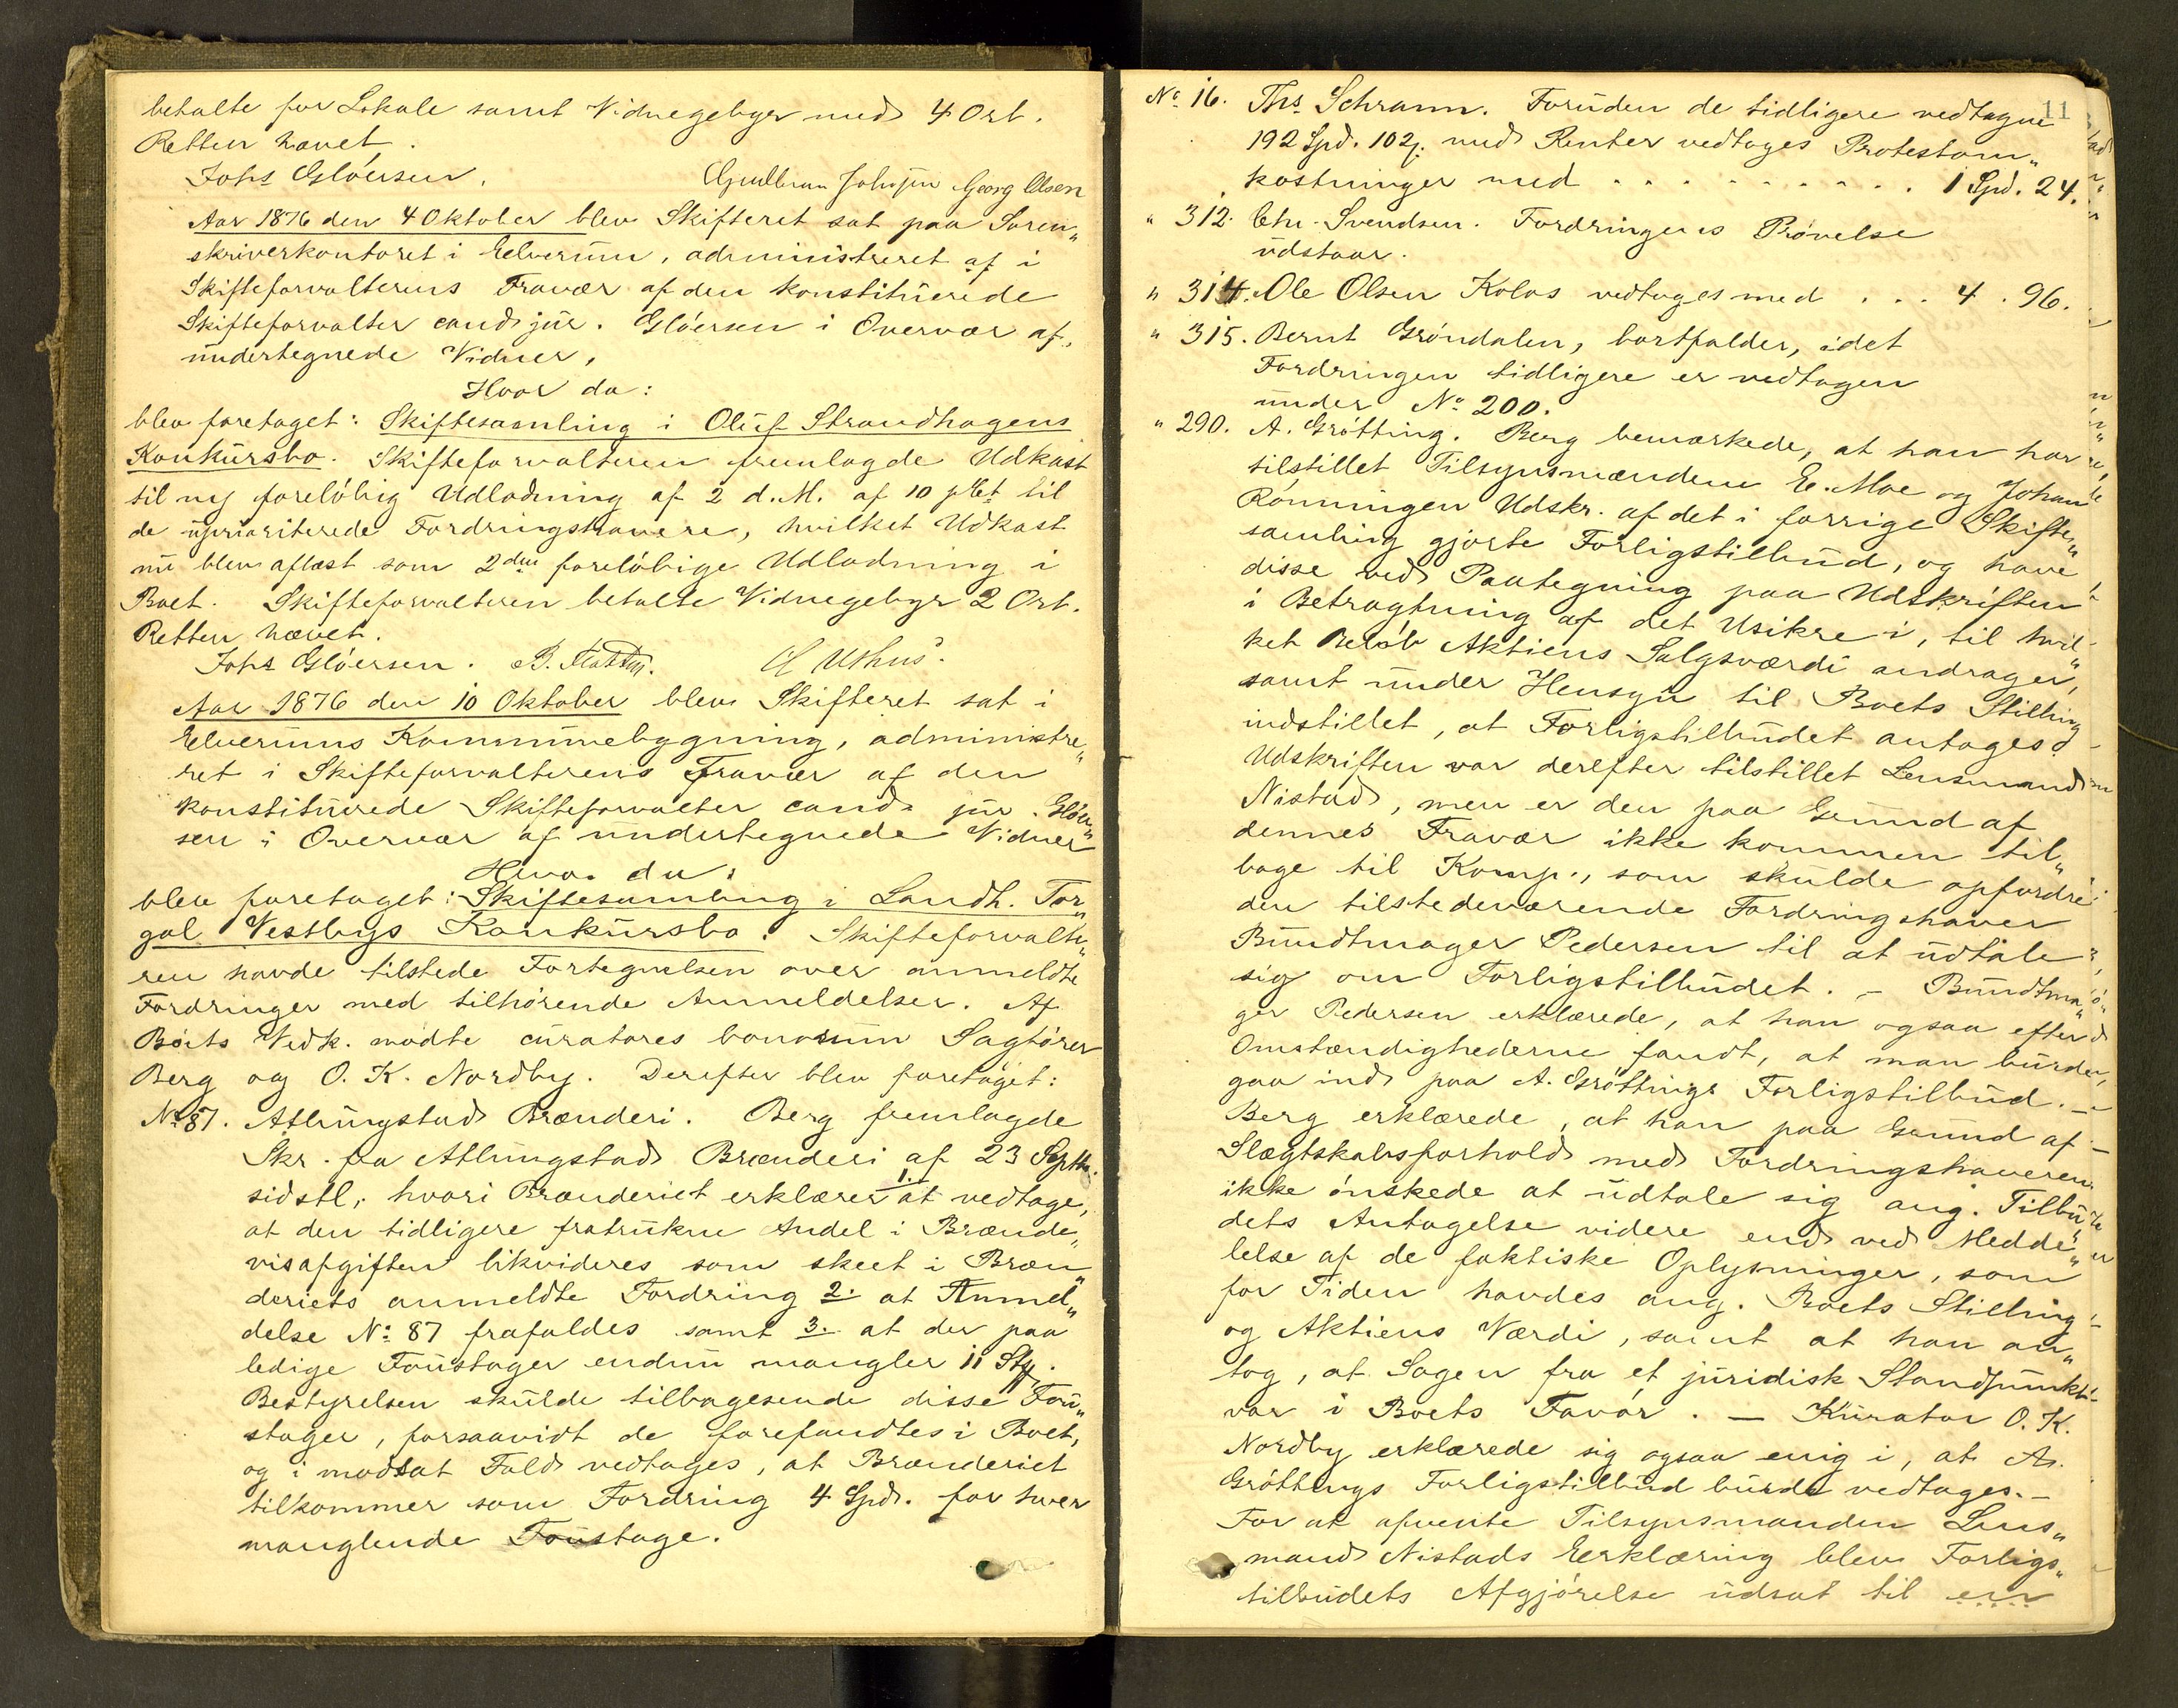 betalte for Lokale samt Vidnegebyr med 4 Ort.
Retten hævet.
Johs Gløersen. Gudbran Johnsen Georg Olsen
Aar 1876 den 4 Oktober blev Skifteret sat paa Soren„
skriverkontoret i Elverum, administreret af i
Skifteforvalterens Fravær af den konstituerede
Skifteforvalter cand. jur. Gløersen i Overvær af
undertegnede Vidner,
Hvor da:
blev foretaget: Skiftesamling i Oluf Strandhagens
Konkursbo. Skifteforvalteren fremlagde Udkast
til ny foreløbig Udlodning af 2 d.M. af 10 pCt til
de uprioriterede Fordringshavere, hvilket Udkast
nu blev aflæst som 2den foreløbige Udlodning i
Boet. Skifteforvalteren betalte Vidnegebyr 2 Ort.
Retten hævet.
Johs Gløersen. B. C Ushus.
Aar 1876 den 10 Oktober blev Skifteret sat i
Elverums Kommunebygning, administre„
ret i Skifteforvalterens Fravær af den
konstituerede Skifteforvalter cand. jur. Gløer„
sen i Overvær af undertegnede Vidner
Hvor da:
blev foretaget: Skiftesamling i Landh. Tor„
gal Vestbys Konkursbo. Skifteforvalte„
ren havde tilstede Fortegnelsen over anmeldte
Fordringer med tilhørende Anmeldelser. Af
Boets Vedk. mødte curatores bonorum Sagfører
Berg og O. K. Nordby. Derefter blev foretaget:
No 87. Atlungstad Brænderi. Berg fremlagde
Skr. fra Atlungstad Brænderi af 23 Septbr.
sidstl., hvori Brænderiet erklærer 1. at vedtage,
at den tidligere fratrukne Andel i Brænde„
visafgiften likvideres som skeet i Bræn„
deriets anmeldte Fordring 2. at Anmel„
delse No 87 frafaldes samt 3. at der paa
ledige Foustager endnu mangler 11 Stk.
Bestyrelsen skulde tilbagesende disse Fou„
stager, forsaavidt de forefandtes i Boet,
og i modsat Fald vedtages, at Brænderiet
tilkommer som Fordring 4 Spd. for hver
manglende Foustage.
11
No 16. Ths. Schramm. Foruden de tidligere vedtagne
192 Spd. 102 β. med Renter vedtages Protestom„
kostninger med . . . . . . . . . . 1 Spd. 24.
" 312. Chr. Svendsen. Fordringens Prøvelse
udstaar.
" 314. Ole Olsen Kolos vedtages med . . . 4 . 96.
" 315. Bernt Grøndalen, bortfalder, idet
Fordringen tidligere er vedtagen
under No 200.
" 290. A. Grøtting. Berg bemærkede, at han har
tilstillet Tilsynsmændene E. Moe og Johan
Rønningen Udskr. af det i forrige Skifte„
samling gjorte Forligstilbud, og have
disse ved Paategning paa Udskriften
i Betragtning af det Usikre i, til hvil„
ket Beløb Aktiens Salgsværdi andrager,
samt under Hensyn til Boets Stilling
indstillet, at Forligstilbudet antages.
Udskriften var derefter tilstillet Lensmand
Nistad, men er den paa Grund af
dennes Fravær ikke kommen til„
bage til Komp., som skulde opfordre
den tilstedeværende Fordringshaver
Bundtmager Pedersen til at udtale
sig om Forligstilbudet. – Bundtma„
ger Pedersen erklærede, at han ogsaa efter
Omstændighederne fandt, at man burde
gaa ind paa A. Grøttings Forligstilbud. –
Berg erklærede, at han paa Grund af
Slægtskabsforhold med Fordringshaveren
ikke ønskede at udtale sig ang. Tilbu„
dets Antagelse videre end ved Medde„
lelse af de faktiske Oplysninger, som
for Tiden havdes ang. Boets Stilling
og Aktiens Værdi, samt at han an„
tog, at Sagen fra et juridisk Standpunkt
var i Boets Favør. – Kurator O. K.
Nordby erklærede sig ogsaa enig i, at A.
Grøttings Forligstilbud burde vedtages. –
For at afvente Tilsynsmanden Lens„
mand Nistads Erklæring blev Forligs„
tilbudets Afgjørelse udsat til en